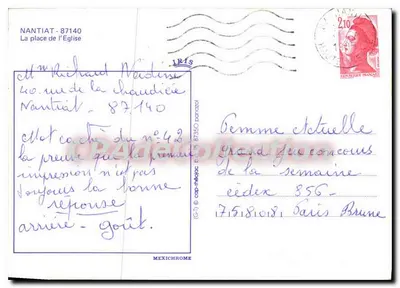 NANTIAT - 87140
La place de l'Eglise
IRIS
2,10
Mme Richard
40 rue de la chaudière
Nantiat - 87140
Mot caché du n° 42
la preuve que la première
impression n'est pas
toujours la bonne
réponse
arrière - goût.
MEXICHROME
Femme Actuelle
grand jeu concours
de la semaine
cédex 856
75808 Paris Brune